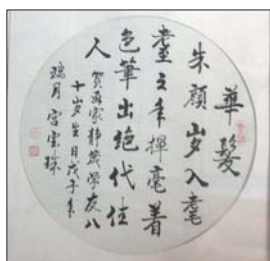 華髮
朱顏岁入耄
耋之年揮毫着
色筆出絕代佳
人
賀家静茂學友八
十岁生日戊子年
月宝珠